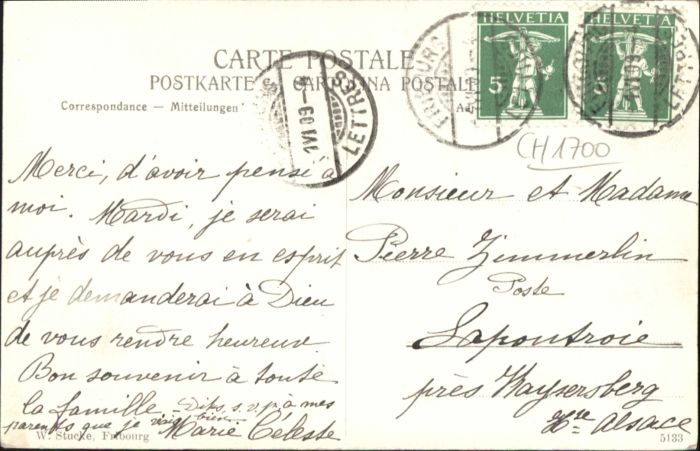 CARTE POSTALE
POSTKARTE CARTOLINA POSTALE
Correspondance — Mitteilungen
HELVETIA
5
HELVETIA
FRIBOURG
LETTRES
1 VI 09
LETTRES
CH 1700
Merci, d'avoir pensé à
moi. Mardi, je serai
auprès de vous en esprit
et je demanderai à Dieu
de vous rendre heureux
Bon souvenir à toute
la famille — Dites, s. v. p. à mes
parents que je vais bien
Marie Céleste
Monsieur et Madame
Pierre Zimmerlin
Poste
Lapoutroie
près Kaysersberg
Hte Alsace
W. Stucke, Fribourg
5133